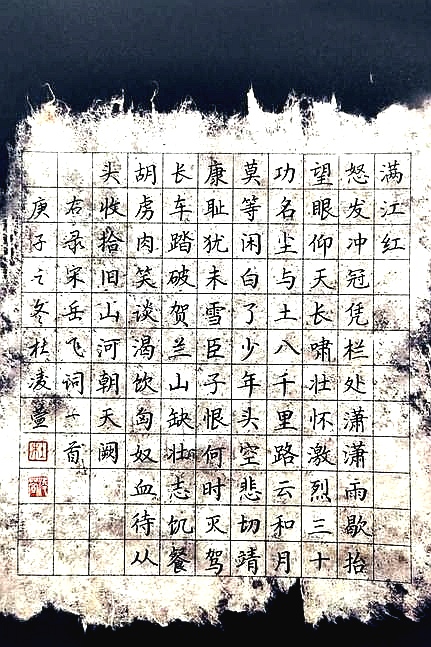 满江红
怒发冲冠凭栏处潇潇雨歇抬
望眼仰天长啸壮怀激烈三十
功名尘与土八千里路云和月
莫等闲白了少年头空悲切靖
康耻犹未雪臣子恨何时灭驾
长车踏破贺兰山缺壮志饥餐
胡虏肉笑谈渴饮匈奴血待从
头收拾旧山河朝天阙
右录宋岳飞词一首
庚子之冬杜凌萱